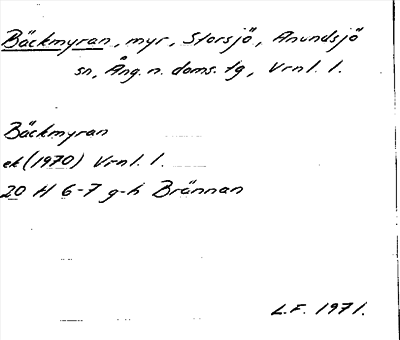 Bäckmyran, myr, Storsjö, Anundsjö
sn, Ång. n. doms. tg, Vrnl. l.
Bäckmyran
ek (1970) Vrnl. l.
20 H 6-7 g-h Brännan
L.F. 1971.